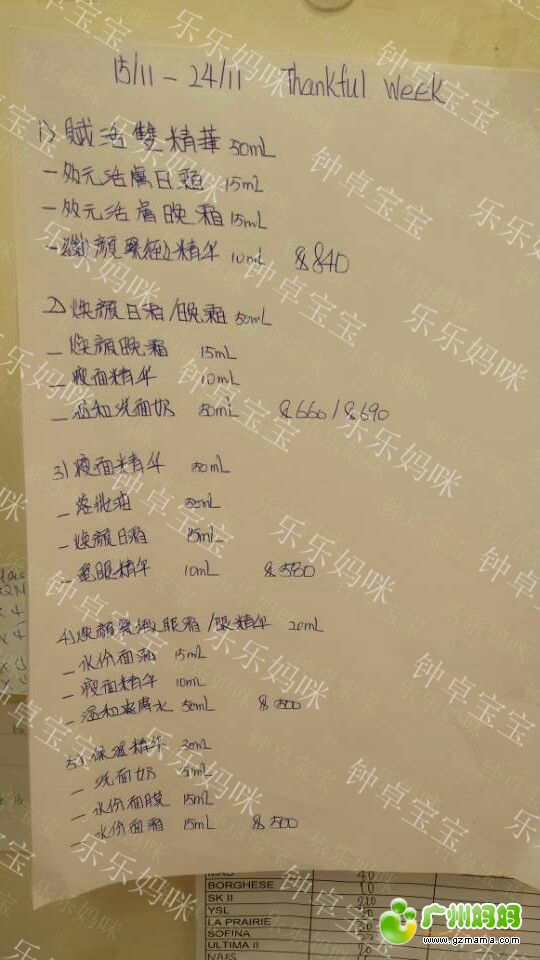 15/11 - 24/11 Thankful Week
1) 賦活雙精華 50mL
- 効元活膚日霜 15mL
- 効元活膚晚霜 15mL
- 顏緊緻精华 10mL $840
2) 煥顏日霜/晚霜 50mL
- 煥顏晚霜 15mL
- 瘦面精华 10mL
- 温和洗面奶 50mL $660/$690
3) 瘦面精华 50mL
- 落妝油 50mL
- 煥顏日霜 15mL
- 電眼精华 10mL $580
4) 煥顏緊緻眼霜/精华 20mL
- 水份面霜 15mL
- 瘦面精华 10mL
- 温和爽膚水 50mL $500
5) 保湿精华 30mL
- 洗面奶 50mL
- 水份面膜 15mL
- 水份面霜 15mL $500
BORGHESE
SK II
YSL
LA PRAIRIE
SOFINA
ULTIMA II
钟卓宝宝
乐乐妈咪
广州妈妈
www.gzmama.com